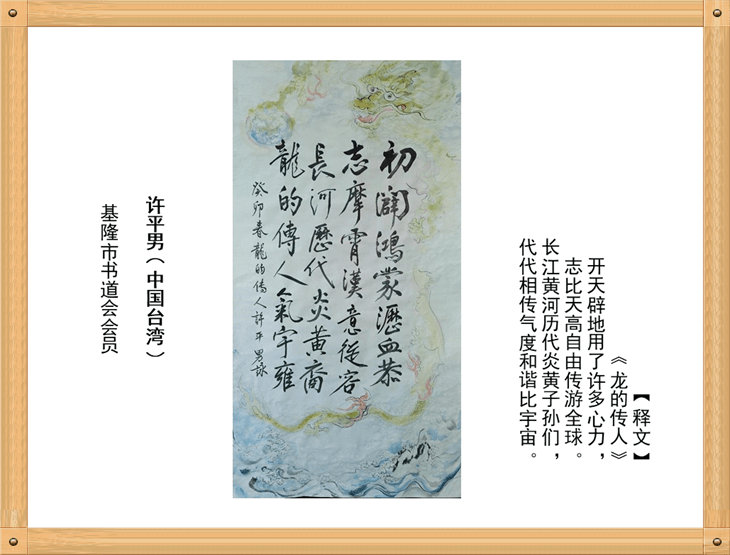 【释文】
《龙的传人》
开天辟地用了许多心力，
志比天高自由传游全球。
长江黄河历代炎黄子孙们，
代代相传气度和谐比宇宙。
初闢鴻蒙瀝血恭
志摩霄漢意從容
長河歷代炎黃裔
龍的傳人氣宇雍
癸卯春龍的傳人許平男詠
许平男（中国台湾）
基隆市书道会会员